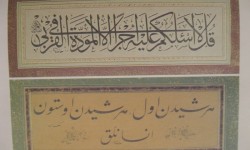 قل لا اسئلكم عليه اجرا الا المودة في القربى
هر شيدن اول هر شيدن اوستون
انسانلق